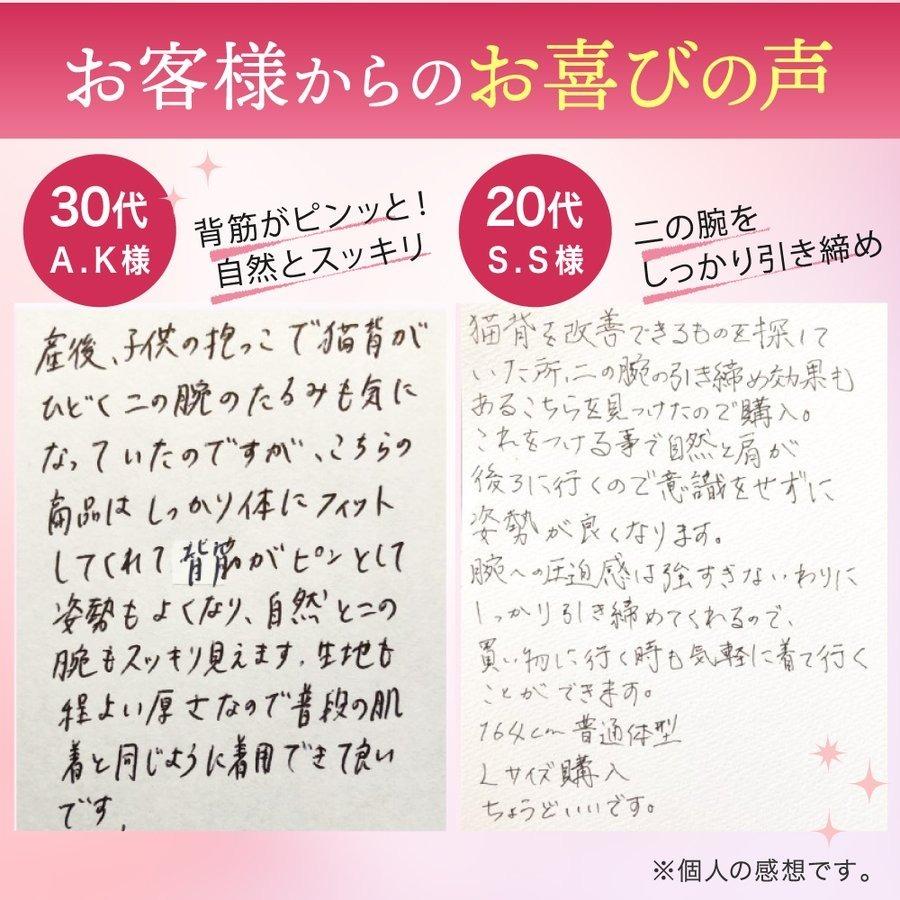 お客様からのお喜びの声
30代
A.K様
背筋がピンッと!
自然とスッキリ
産後、子供の抱っこで猫背が
ひどく二の腕のたるみも気に
なっていたのですが、こちらの
商品はしっかり体にフィット
してくれて背筋がピンとして
姿勢もよくなり、自然と二の
腕もスッキリ見えます。生地も
程よい厚さなので普段の肌
着と同じように着用できて良い
です。
20代
S.S様
二の腕を
しっかり引き締め
猫背を改善できるものを探して
いた所、二の腕の引き締め効果も
あるこちらを見つけたので購入。
これをつける事で自然と肩が
後ろに行くので意識をせずに
姿勢が良くなります。
腕への圧迫感は強すぎないわりに
しっかり引き締めてくれるので、
買い物に行く時も気軽に着て行く
ことができます。
164cm普通体型
Lサイズ購入
ちょうどいいです。
※個人の感想です。